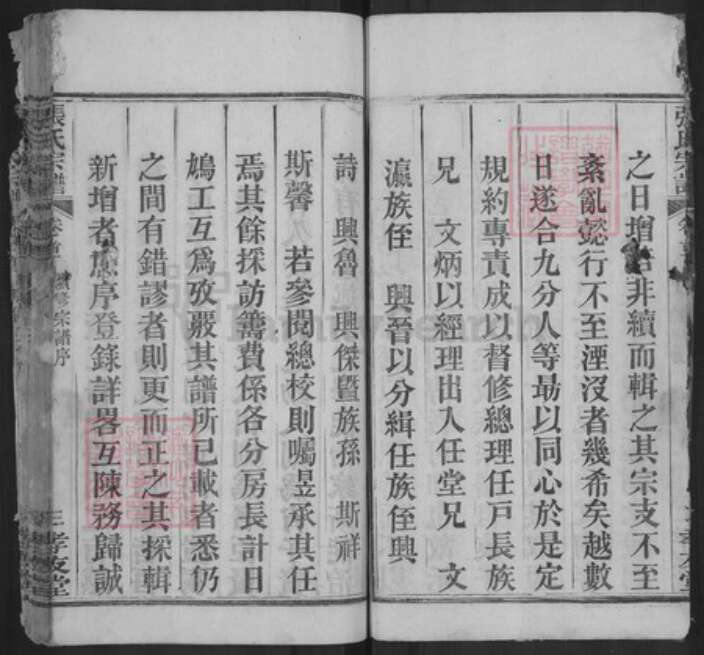 之日增、非續而輯之其宗支不至
紊亂懿行不至湮沒者幾希矣越數
日遂合九分人等勗以同心於是定
規約專責成以督修總理任戶長族
兄　文炳以經理出入任堂兄　文
瀛族侄　興晉以分緝任族侄興
詩　興魯　興傑暨族孫　斯祥
斯馨　若參閱總校則囑昱承其任
焉其餘採訪籌費係各分房長計日
鳩工互為攷覈其譜所已載者悉仍
之間有錯謬者則更而正之其採輯
新增者序登錄詳畧互陳務歸誠
張氏宗譜
卷首
續修宗譜序
三
孝友堂